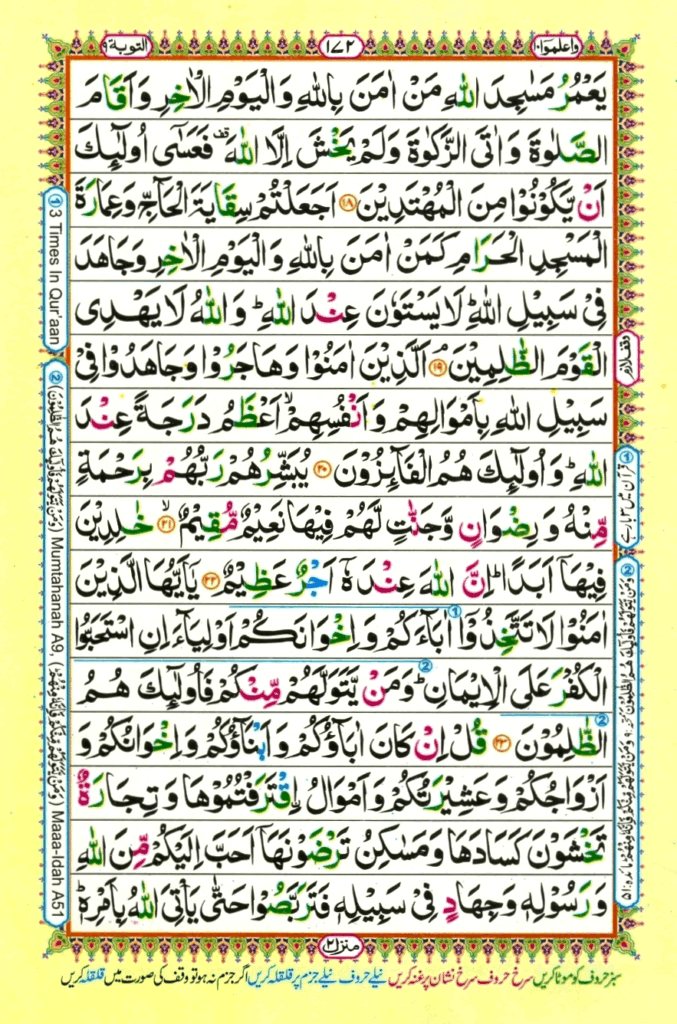 واعلموا۱۰
۱۷۲
التوبة۹
يَعْمُرُ مَسٰجِدَ اللّٰهِ مَنْ اٰمَنَ بِاللّٰهِ وَالْيَوْمِ الْاٰخِرِ وَاَقَامَ
الصَّلٰوةَ وَاٰتَى الزَّكٰوةَ وَلَمْ يَخْشَ اِلَّا اللّٰهَ قف فَعَسٰٓى اُولٰٓئِكَ
اَنْ يَّكُوْنُوْا مِنَ الْمُهْتَدِيْنَ ۱۸ اَجَعَلْتُمْ سِقَايَةَ الْحَآجِّ وَعِمَارَةَ
الْمَسْجِدِ الْحَرَامِ كَمَنْ اٰمَنَ بِاللّٰهِ وَالْيَوْمِ الْاٰخِرِ وَجَاهَدَ
فِيْ سَبِيْلِ اللّٰهِ ؕ لَا يَسْتَوٗنَ عِنْدَ اللّٰهِ ؕ وَاللّٰهُ لَا يَهْدِى
الْقَوْمَ الظّٰلِمِيْنَ ۘ ۱۹ اَلَّذِيْنَ اٰمَنُوْا وَهَاجَرُوْا وَجَاهَدُوْا فِيْ
سَبِيْلِ اللّٰهِ بِاَمْوَالِهِمْ وَاَنْفُسِهِمْ ۙ اَعْظَمُ دَرَجَةً عِنْدَ
اللّٰهِ ؕ وَاُولٰٓئِكَ هُمُ الْفَآئِزُوْنَ ۲۰ يُبَشِّرُهُمْ رَبُّهُمْ بِرَحْمَةٍ
مِّنْهُ وَرِضْوَانٍ وَّجَنّٰتٍ لَّهُمْ فِيْهَا نَعِيْمٌ مُّقِيْمٌ ۙ ۲۱ خٰلِدِيْنَ
فِيْهَآ اَبَدًا ؕ اِنَّ اللّٰهَ عِنْدَهٗٓ اَجْرٌ عَظِيْمٌ ۲۲ يٰٓاَيُّهَا الَّذِيْنَ
اٰمَنُوْا لَا تَتَّخِذُوْٓا اٰبَآءَكُمْ وَاِخْوَانَكُمْ اَوْلِيَآءَ اِنِ اسْتَحَبُّوا
الْكُفْرَ عَلَى الْاِيْمَانِ ؕ وَمَنْ يَّتَوَلَّهُمْ مِّنْكُمْ فَاُولٰٓئِكَ هُمُ
الظّٰلِمُوْنَ ۲۳ قُلْ اِنْ كَانَ اٰبَآؤُكُمْ وَاَبْنَآؤُكُمْ وَاِخْوَانُكُمْ وَ
اَزْوَاجُكُمْ وَعَشِيْرَتُكُمْ وَاَمْوَالُ ۨاقْتَرَفْتُمُوْهَا وَتِجَارَةٌ
تَخْشَوْنَ كَسَادَهَا وَمَسٰكِنُ تَرْضَوْنَهَآ اَحَبَّ اِلَيْكُمْ مِّنَ اللّٰهِ
وَرَسُوْلِهٖ وَجِهَادٍ فِيْ سَبِيْلِهٖ فَتَرَبَّصُوْا حَتّٰى يَاْتِىَ اللّٰهُ بِاَمْرِهٖ ؕ
منزل۲
① 3 Times In Qur'aan
② (وَمَنْ يَّتَوَلَّهُمْ فَاُولٰٓئِكَ هُمُ الظّٰلِمُوْنَ) Mumtahanah A9, (وَمَنْ يَّتَوَلَّهُمْ مِّنْكُمْ فَاِنَّهٗ مِنْهُمْ) Maaa-Idah A51
① قرآن میں ۳ بار ہے
② وَمَنْ يَّتَوَلَّهُمْ فَاُولٰٓئِكَ هُمُ الظّٰلِمُوْنَ ۹ وَمَنْ يَّتَوَلَّهُمْ مِّنْكُمْ فَاِنَّهٗ مِنْهُمْ مائدہ: ۵۱
سبز حروف کو موٹا کریں سرخ حروف سرخ نشان پر غنہ کریں نیلے حروف نیلے جزم پر قلقلہ کریں اگر جزم نہ ہو تو وقف کی صورت میں قلقلہ کریں